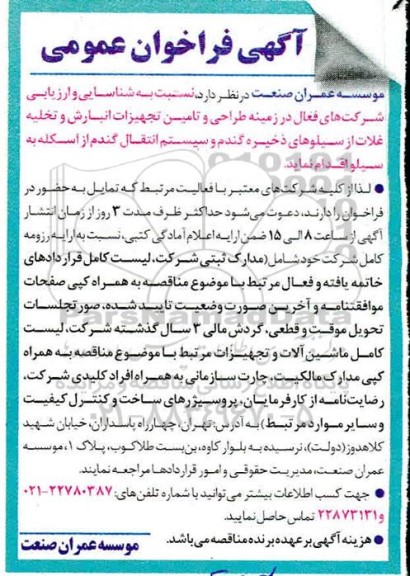 آگهی فراخوان عمومی
موسسه عمران صنعت در نظر دارد، نسبت به شناسایی و ارزیابی
شرکت‌های فعال در زمینه طراحی و تامین تجهیزات انبارش و تخلیه
غلات از سیلوهای ذخیره گندم و سیستم انتقال گندم از اسکله به
سیلو اقدام نماید.
● لذا از کلیه شرکت‌های معتبر با فعالیت مرتبط که تمایل به حضور در
فراخوان را دارند، دعوت می‌شود حداکثر ظرف مدت ۳ روز از زمان انتشار
آگهی از ساعت ۸ الی ۱۵ ضمن ارایه اعلام آمادگی کتبی، نسبت به ارایه رزومه
کامل شرکت خود شامل (مدارک ثبتی شرکت، لیست کامل قراردادهای
خاتمه یافته و فعال مرتبط با موضوع مناقصه به همراه کپی صفحات
موافقتنامه و آخرین صورت وضعیت تایید شده، صورتجلسات
تحویل موقت و قطعی، گردش مالی ۳ سال گذشته شرکت، لیست
کامل ماشین آلات و تجهیزات مرتبط با موضوع مناقصه به همراه
کپی مدارک مالکیت، چارت سازمانی به همراه افراد کلیدی شرکت،
رضایت‌نامه از کارفرمایان، پروسیژرهای ساخت و کنترل کیفیت
و سایر موارد مرتبط) به آدرس: تهران، چهارراه پاسداران، خیابان شهید
کلاهدوز (دولت)، نرسیده به بلوار کاوه، بن‌بست طلاکوب، پلاک ۱، موسسه
عمران صنعت، مدیریت حقوقی و امور قراردادها مراجعه نمایند.
● جهت کسب اطلاعات بیشتر می‌توانید با شماره تلفن‌های: ۲۲۷۸۰۳۸۷-۰۲۱
و ۲۲۸۷۳۱۳۱ تماس حاصل نمایید.
● هزینه آگهی بر عهده برنده مناقصه می‌باشد.
موسسه عمران صنعت